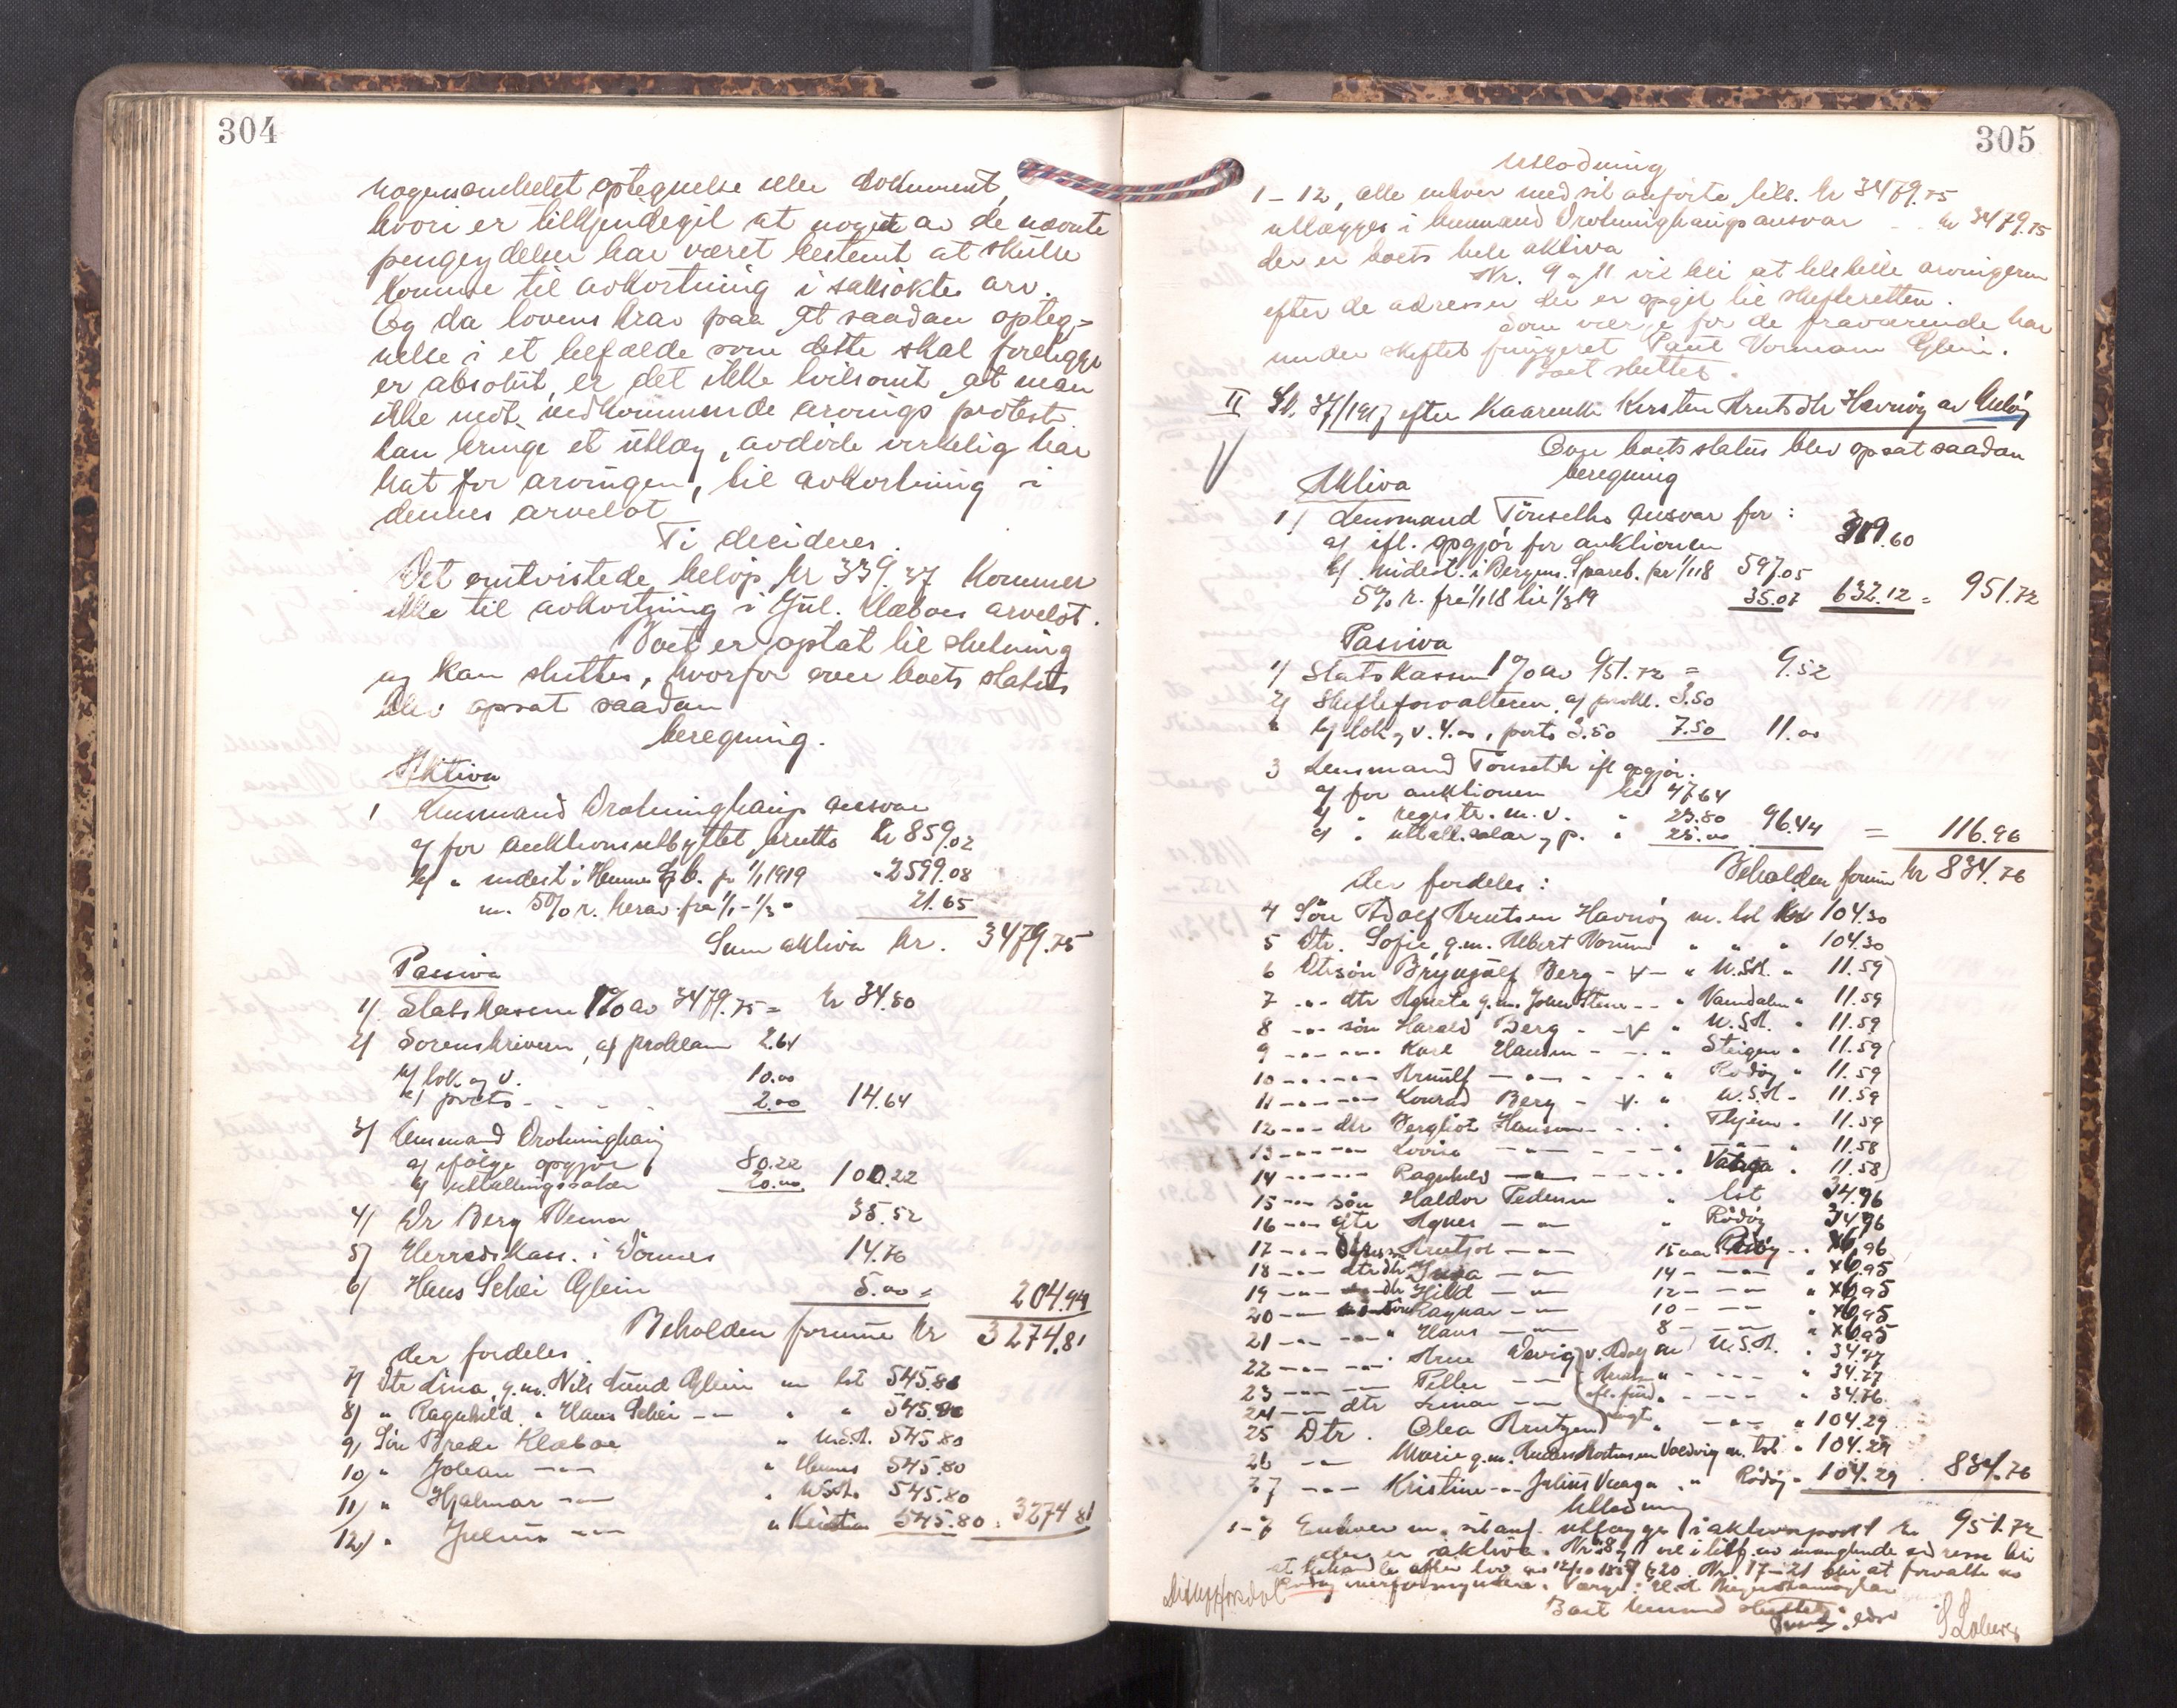 304
nogensomhelst optegnelse eller dokument,
hvori er tilkjendegit at noget av de nævnte
pengeydelser har været bestemt at skulle
komme til avkortning i saksøktes arv.
Og da lovens krav paa at saadan opteg-
nelse i et tilfælde som dette skal foreligge
er absolut, er det ikke tvilsomt, at man
ikke mot vedkommende arvings protest
kan bringe et utlæg, avdøde virkelig har
hat for arvingen, til avkortning i
dennes arvelot
Ti decideres.
Det omtvistede beløp kr 339.37 kommer
ikke til avkortning i Jul. Klæboes arvelot.
Boet er optat til slutning
og kan sluttes, hvorfor over boets status
blev opsat saadan
beregning.
Aktiva
1 Lensmand Drotninghaugs ansvar
a/ for auktionsutbyttet, brutto kr 859.02
b/ " indest. i Hemnes Spb. pr 1/1 1919 " 2599.08
m. 5% r. herav fra 1/1 - 1/3 " 21.65
Sum aktiva kr. 3479.75
Passiva
1/ Statskassen 1% av 3479.75 = kr 34.80
2/ Sorenskriveren, a/ proklam 2.64
b/ lok. og v. 10.00
c/ porto - - - 2.00 14.64
3/ Lensmand Drotninghaug
a/ ifølge opgjør 80.22
b/ uttællingssalær 20.00 100.22
4/ Dr Berg Nesna 35.52
5/ Herredskass. i Dønnes 14.76
6/ Hans Schei Glein 5.00 = 204.94
Beholden formue kr 3274.81
der fordeles
7/ Dtr Lina, g.m. Nils Lund Glein m lst 545.81
8/ " Ragnhild " Hans Schei -"- " " 545.80
9/ Søn Brede Klæboe " U.S.A. 545.80
10/ " Johan -"- " Hemnes 545.80
11/ " Hjalmar -"- " U.S.A. 545.80
12/ " Julius -"- " 545.80 = 3274.81
305
Utlodning
1 - 12, alle enhver med sit anførte, tils. kr 3479.75
utlægges i lensmand Drotninghaugs ansvar - - kr 3479.75
der er boets hele aktiva
Nr. 9 og 11 vil bli at tilstille arvingerne
efter de adresser der er opgit til skifteretten.
Som verge for de fraværende har
under skiftet fungeret Paul Vormann Glein.
Boet sluttes.
II Sk. 37/1917 efter Kaarente Kirsten Knutsdtr Havnøy av Meløy
Over boets status blev opsat saadan
beregning
Aktiva
1/ Lensmand Tønseths ansvar for:
a/ ifl. opgjør for auktionen 319.60
b/ indest. i Bergens Spareb. pr 1/1 18 597.05
5% r. fra 1/1 18 til 1/3 19 35.07 632.12 = 951.72
Passiva
1/ Statskassen 1% av 951.72 = 9.52
2/ Skifteforvalteren, a/ prokl. 3.50
b/ lok. og v. 4.00, porto 3.50 7.50 11.00
3 Lensmand Tønseth ifl opgjør.
a/ for auktionen kr 47.64
b/ " registr. m. v. " 23.80
c/ " uttæll.salær og p. " 25.00 96.44 = 116.96
Beholden formue kr 834.76
der fordeles:
4 Søn Adolf Knutsen Havnøy m. lst kr 104.30
5 Dtr. Sofie, g.m. Albert Vorum " " " 104.30
6 Dtrsøn Brynjulf Berg - v - " U.S.A. " 11.59
7 -"- dtr Agnete g.m. John Stene - - " Vandalen " 11.59
8 -"- søn Harald Berg - - v " U.S.A. " 11.59
9 -"- -"- Karl Hansen - - " Steigen " 11.59
10 -"- -"- Arnulf -"- - - " Rødøy " 11.59
11 -"- -"- Konrad Berg - v. " U.S.A. - 11.59
12 -"- dtr Bergliot Hansen - - " Thjem " 11.59
13 -"- -"- Lovise - - - - " -"- " 11.58
14 -"- -"- Ragnhild -"- - - " 11.58
15 -"- søn Haldor Pedersen " lst 34.96
16 -"- dtr Agnes -"- " Rødøy 34.96
17 -"- Knutsd -"- 15 aar Rødøy - 6.96
18 -"- dtrdtr -"- 14 - -"- " 6.95
19 -"- Hild -"- 12 - -"- " 6.95
20 -"- søn Ragnar -"- 10 - -"- " 6.95
21 -"- -"- Hans -"- 8 - -"- " 6.95
22 -"- -"- Arne U.S.A. " 34.77
23 -"- -"- Petter -"- " 34.77
24 -"- dtr -"- " 34.76
25 Dtr. Olea Knutsen " -"- " 104.29
26 -"- Marie g.m. m. lst " 104.29
27 -"- Kristine -"- Julius Vaaga " Rødøy " 104.29 834.76
Utlodning
Enhver m. sit anf. utlægges i aktivapost 1 kr 951.72
der er aktiva.
Boet sluttet